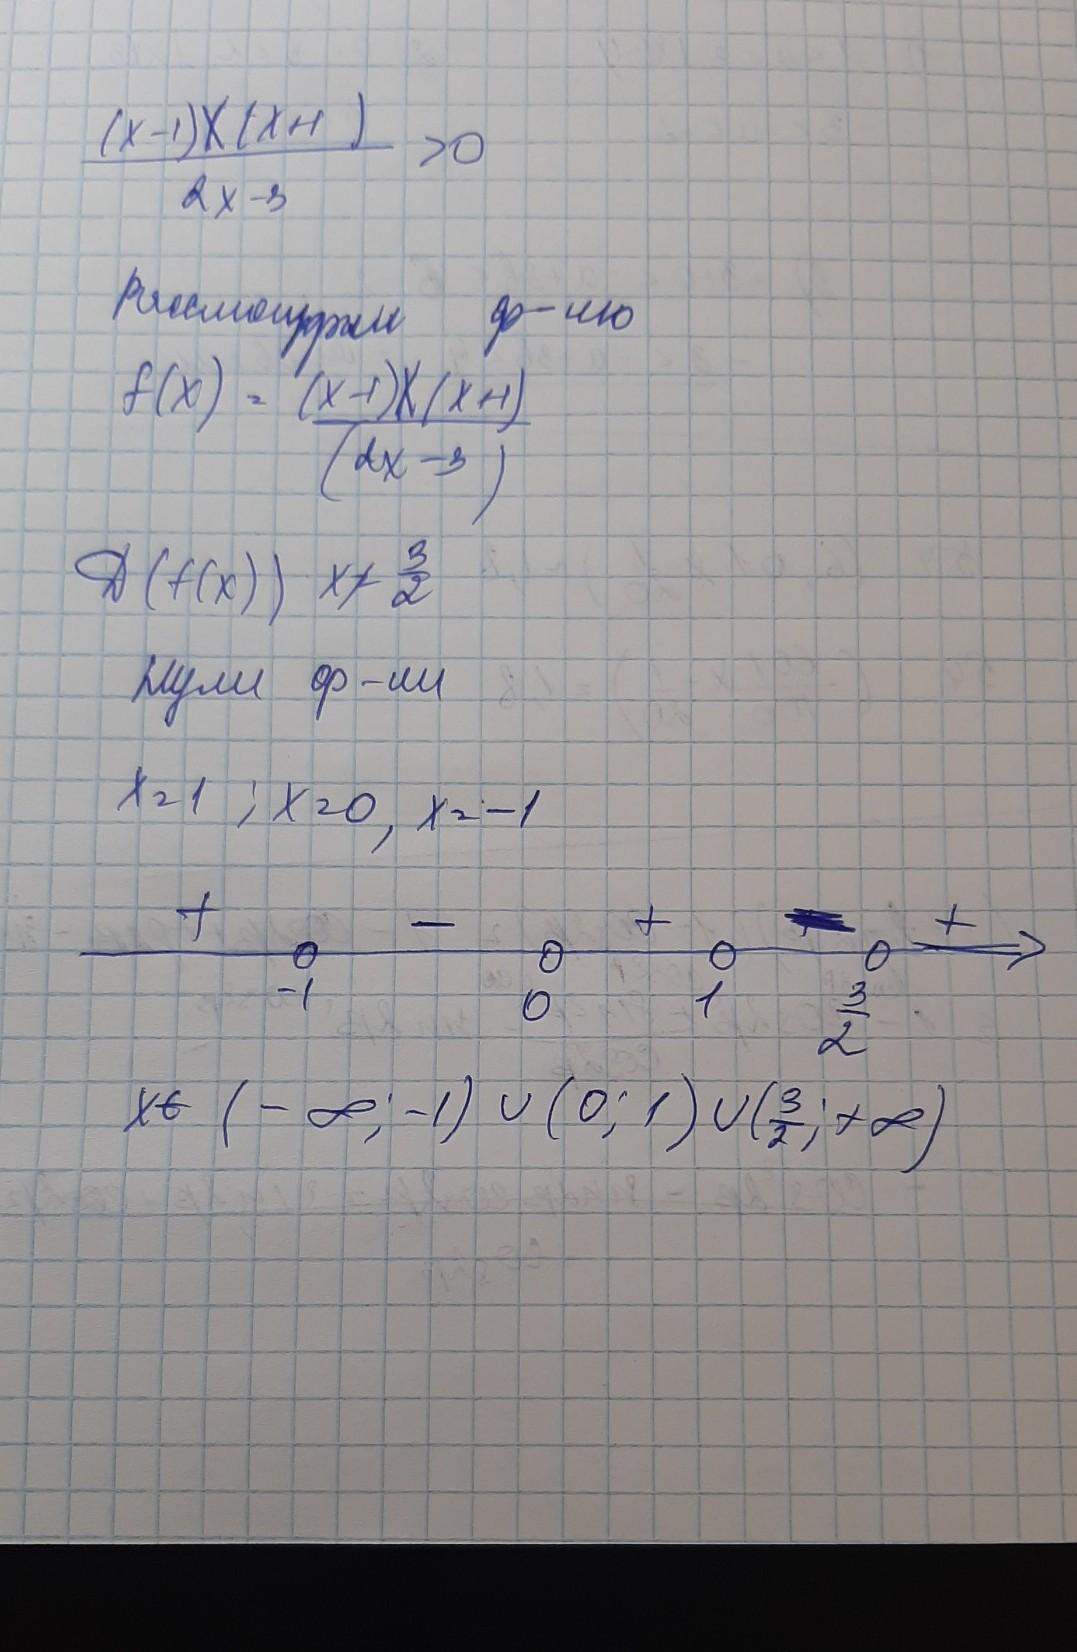 (x-1)x(x+1)
2x-3
>0
Рассмотрим ф-ию
f(x) = (x-1)x(x+1)
(2x-3)
D(f(x)) x≠ 3/2
Нули ф-ии
x=1 ; x=0, x=-1
+ − + − +
-1 0 1 3/2
x∈ (-∞; -1) ∪ (0; 1) ∪ (3/2; +∞)